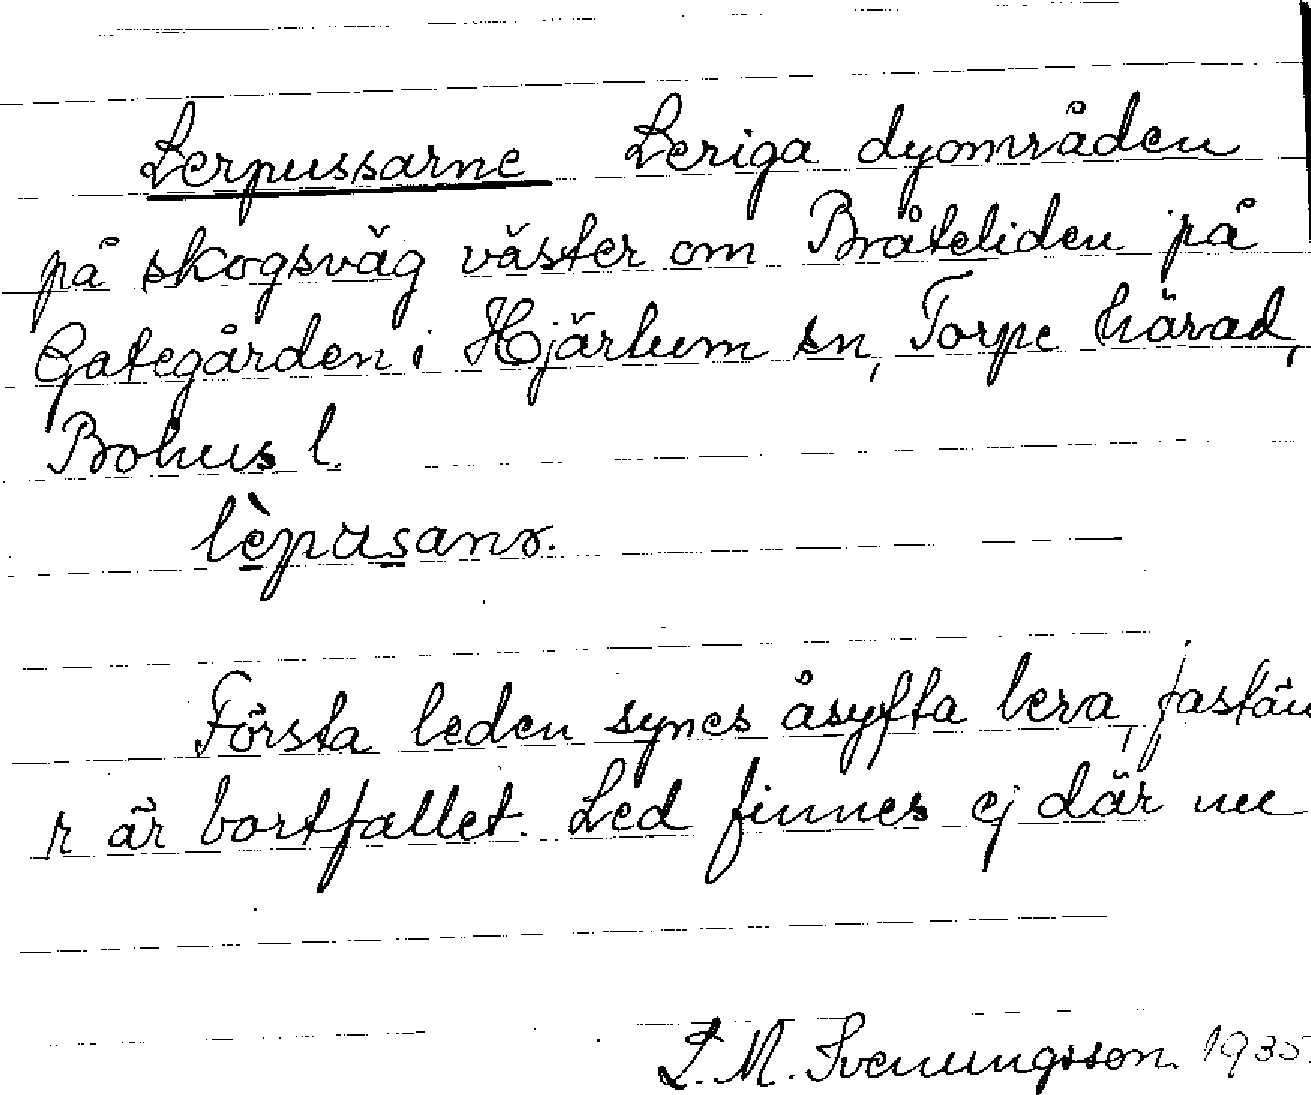 Lerpussarne Leriga dyområden
på skogsväg väster om Bråteliden på
Gategården i Hjärtum sn, Torpe härad,
Bohus l.
lèpusanɘ.
Första leden synes åsyfta lera, fastän
r är bortfallet. Led finnes ej där nu
L. M. Svenungsson 1935.